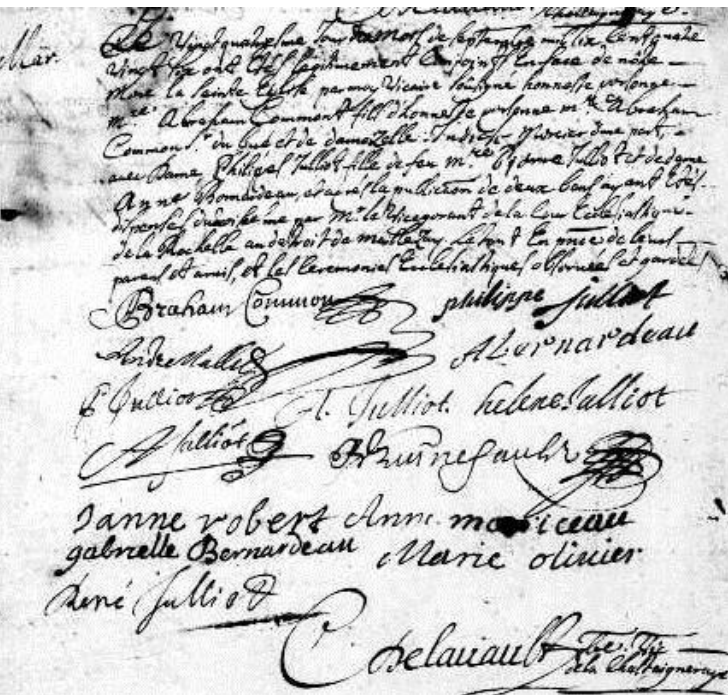 Mar.
Le Vingtquatriesme Jour du mois de septembre mil six cent quatre
vingt six ont Estés legitimement Conjoint En face de nostre
Mere la sainte Eglise par moy Vicaire soubsigné honneste personne
mre Abraham Commont fils d'honneste personne mre Abraham
Common sr du Gué et de damoizelle Judith Mercier d'une part,
avec Dame Philipes Julliot fille de feu mre Julliot et de dame
Anne Bernardeau, et apres la publicaon de deux bans ayant Estés
dispensés du troisieme par Mr le Vicegerant de la Cour Eclesiastique
de la Rochelle au detroit de maillezay. Le tout En pnce de leurs
parens et amis, et les Ceremonies Ecclesiastiques observées et gardées
Abraham Common philippe Julliot
André ABernardeau
Julliot
A. Julliot. helene Julliot
A Julliot
Janne robert Anne moriceau
gabrielle Bernardeau Marie olivier
René Julliot
Delavault
de la Chastaigneraye